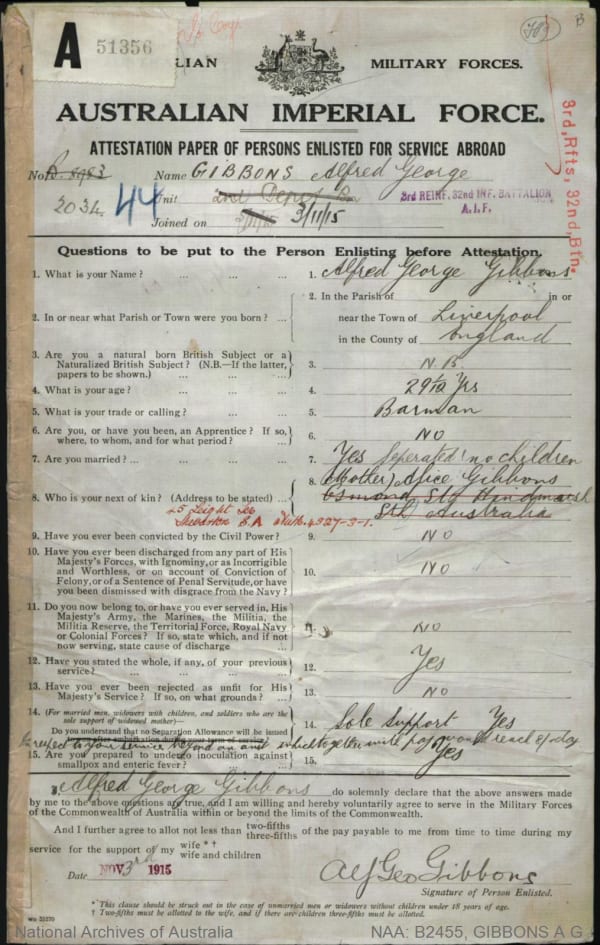 A 51356
AUSTRALIAN MILITARY FORCES.
AUSTRALIAN IMPERIAL FORCE.
ATTESTATION PAPER OF PERSONS ENLISTED FOR SERVICE ABROAD
No. Name GIBBONS Alfred George
2034 44 Unit 2nd Depot Bn 3rd REINF. 32nd INF. BATTALION
A.I.F.
Joined on 3/11/15
3rd, Rfts, 32nd, Btn.
Questions to be put to the Person Enlisting before Attestation.
1. What is your Name? ... ... ... 1. Alfred George Gibbons
2. In or near what Parish or Town were you born? ... 2. In the Parish of in or
near the Town of Liverpool
in the County of England
3. Are you a natural born British Subject or a
Naturalized British Subject? (N.B.—If the latter,
papers to be shown.) ... 3. N.B.
4. What is your age? ... ... ... 4. 29 Yrs
5. What is your trade or calling? ... ... 5. Barman
6. Are you, or have you been, an Apprentice? If so,
where, to whom, and for what period? ... 6. NO
7. Are you married? ... ... ... 7. Yes Seperated no children
8. Who is your next of kin? (Address to be stated) ... 8. (Mother) Alice Gibbons
Osmond St Hindmarsh
Sth Australia
9. Have you ever been convicted by the Civil Power? 9. NO
10. Have you ever been discharged from any part of His
Majesty's Forces, with Ignominy, or as Incorrigible
and Worthless, or on account of Conviction of
Felony, or of a Sentence of Penal Servitude, or have
you been dismissed with disgrace from the Navy? 10. NO
11. Do you now belong to, or have you ever served in, His
Majesty's Army, the Marines, the Militia, the
Militia Reserve, the Territorial Force, Royal Navy
or Colonial Forces? If so, state which, and if not
now serving, state cause of discharge ... 11. NO
12. Have you stated the whole, if any, of your previous
service? ... ... ... 12. Yes
13. Have you ever been rejected as unfit for His
Majesty's Service? If so, on what grounds? ... 13. NO
14. (For married men, widowers with children, and soldiers who are the
sole support of widowed mother)—
Do you understand that no Separation Allowance will be issued 14. Sole Support Yes
respect to your service beyond an amt which together with pay would reach 8/- day
15. Are you prepared to undergo inoculation against
smallpox and enteric fever? ... 15. Yes
I, Alfred George Gibbons do solemnly declare that the above answers made
by me to the above questions are true, and I am willing and hereby voluntarily agree to serve in the Military Forces
of the Commonwealth of Australia within or beyond the limits of the Commonwealth.
And I further agree to allot not less than two-fifths three-fifths of the pay payable to me from time to time during my
service for the support of my wife * †
wife and children
Date NOV 3rd 1915 Alf Geo Gibbons
Signature of Person Enlisted.
* This clause should be struck out in the case of unmarried men or widowers without children under 18 years of age.
† Two-fifths must be allotted to the wife, and if there are children three-fifths must be allotted.
National Archives of Australia NAA: B2455, GIBBONS A G